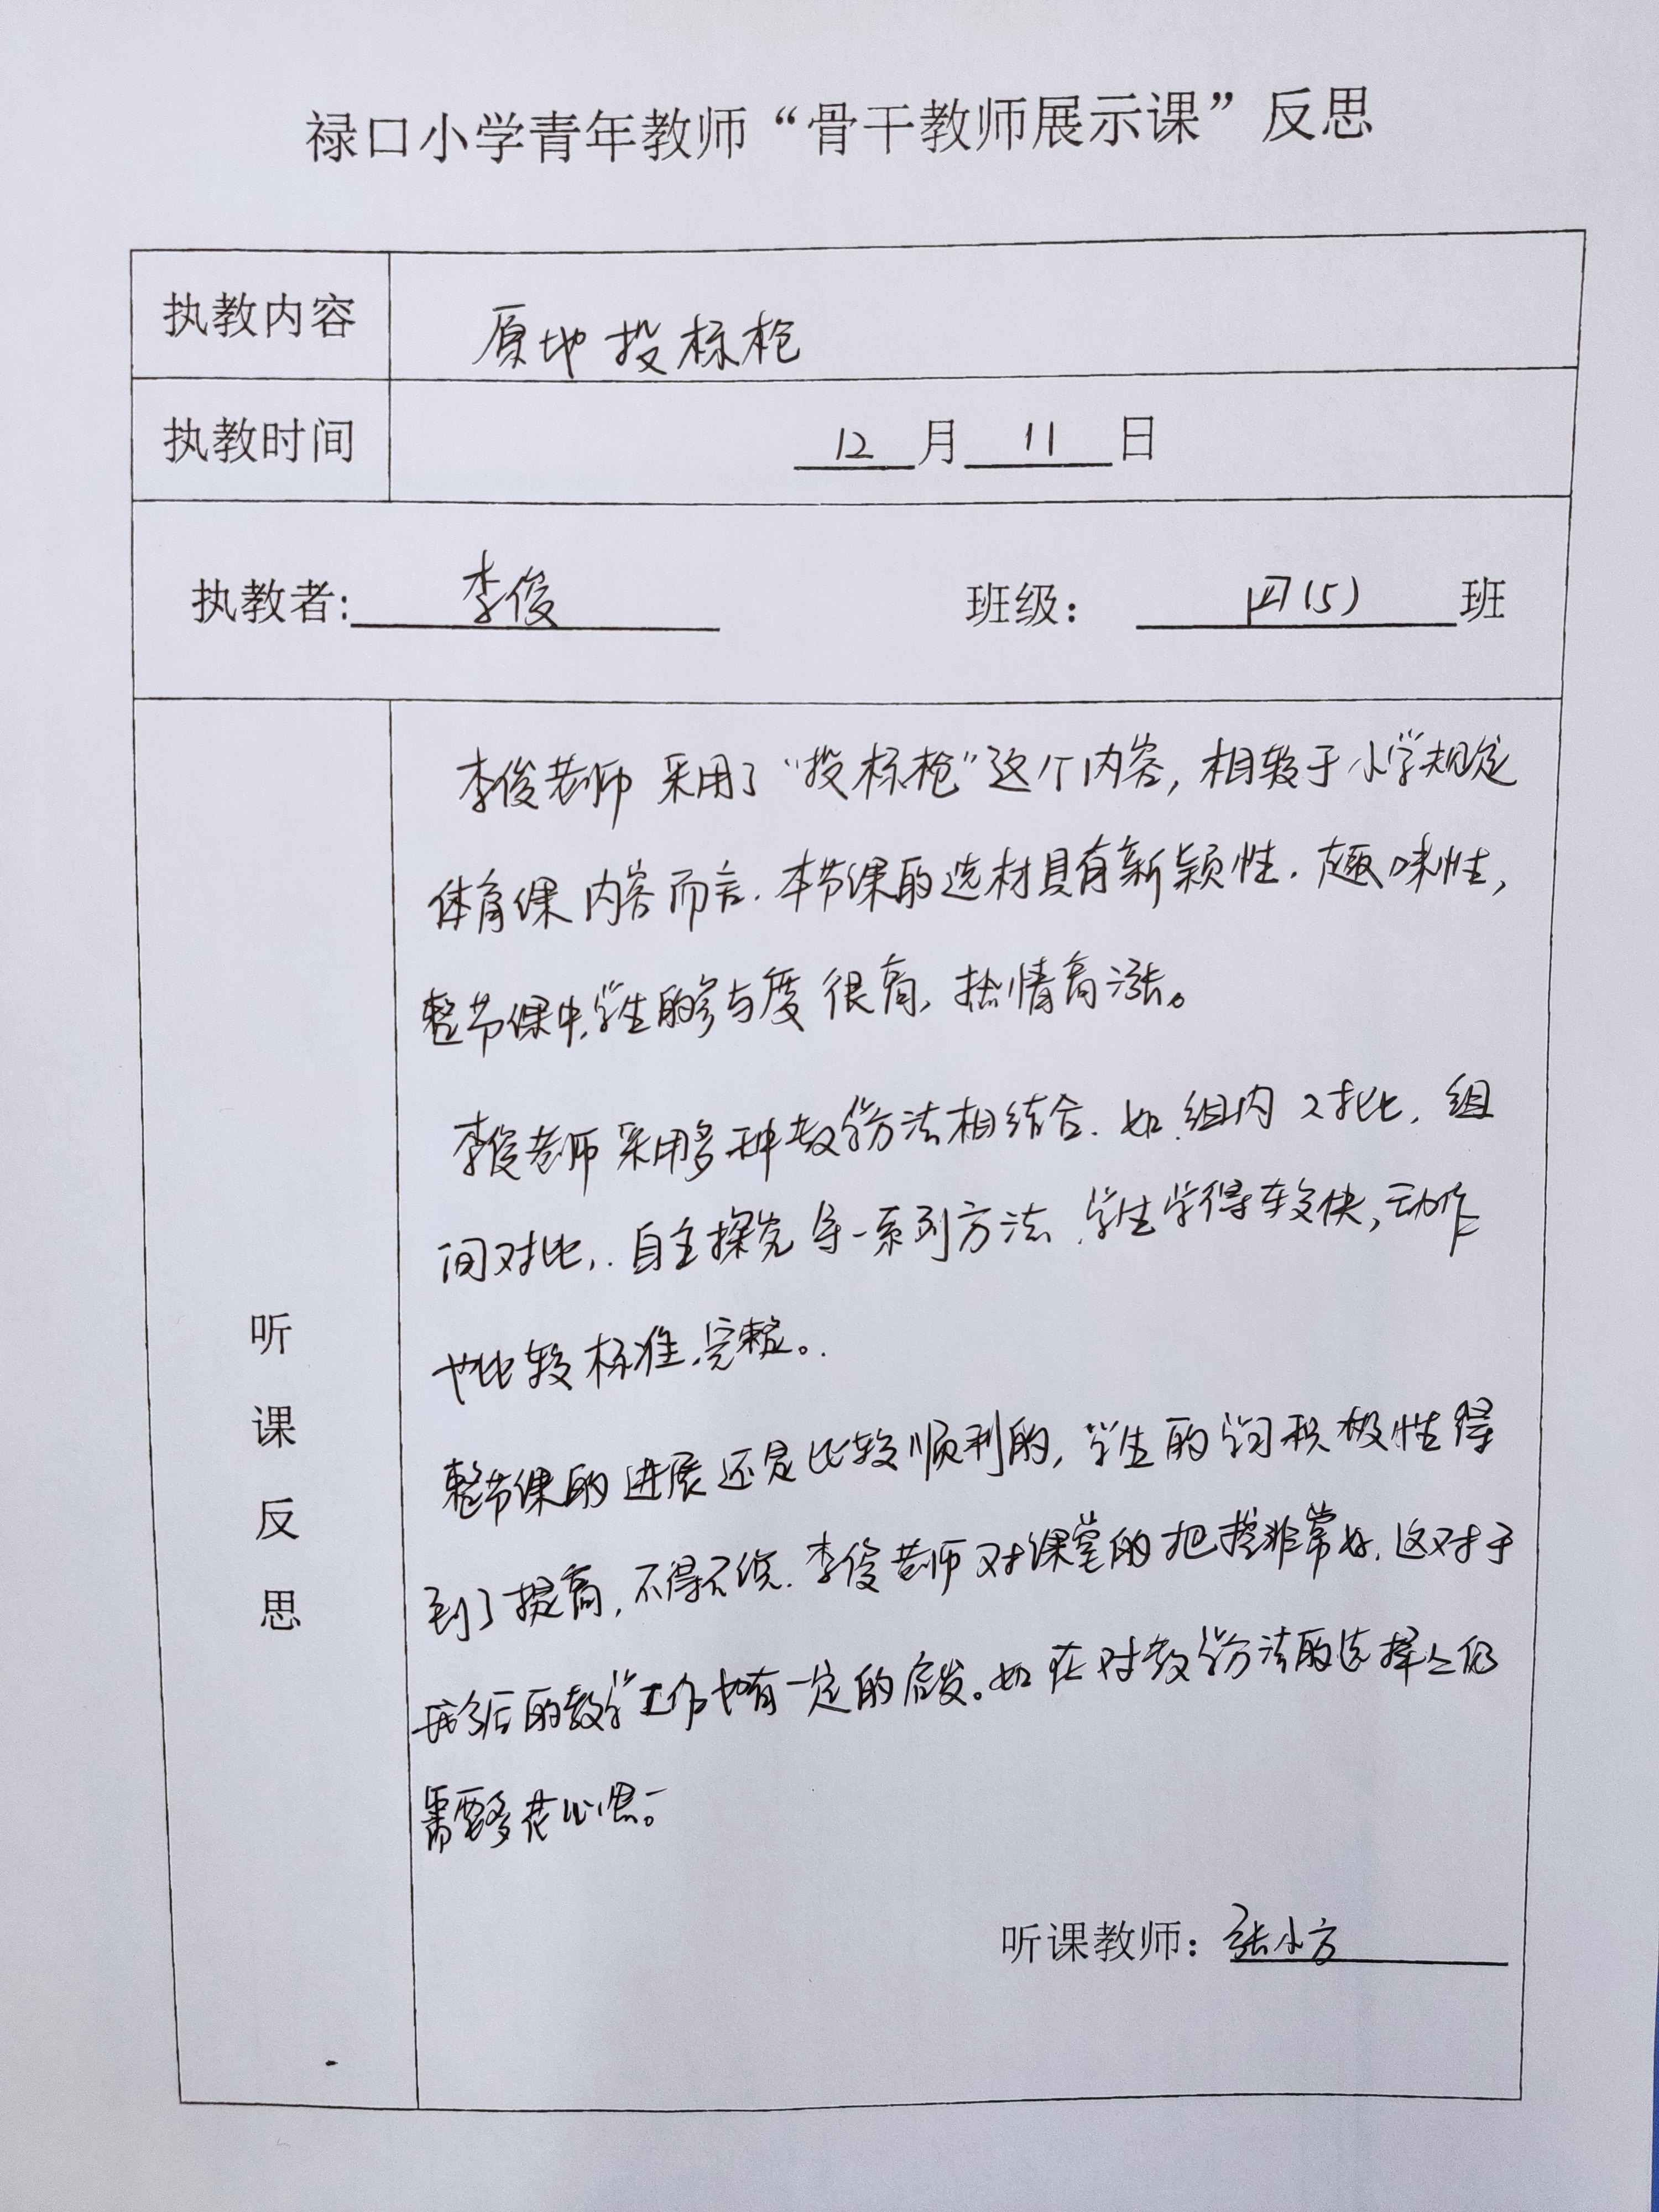 禄口小学青年教师“骨干教师展示课”反思
执教内容 原地投标枪
执教时间 12月11日
执教者:李俊 班级：四(5)班
李俊老师采用了“投标枪”这个内容,相较于小学规定
体育课内容而言.本节课的选材具有新颖性.趣味性,
整节课中,学生的参与度很高,热情高涨。
李俊老师采用多种教学方法相结合.如.组内对比,组
间对比,.自主探究等一系列方法.学生学得较快,动作
也比较标准.完整。.
整节课的进展还是比较顺利的,学生的学习积极性得
到了提高,不得不说.李俊老师对课堂的把控非常好.这对于
我今后的教学工作也有一定的启发。如在对教学方法的选择上仍
需要多花心思。
听课反思
听课教师：张小方